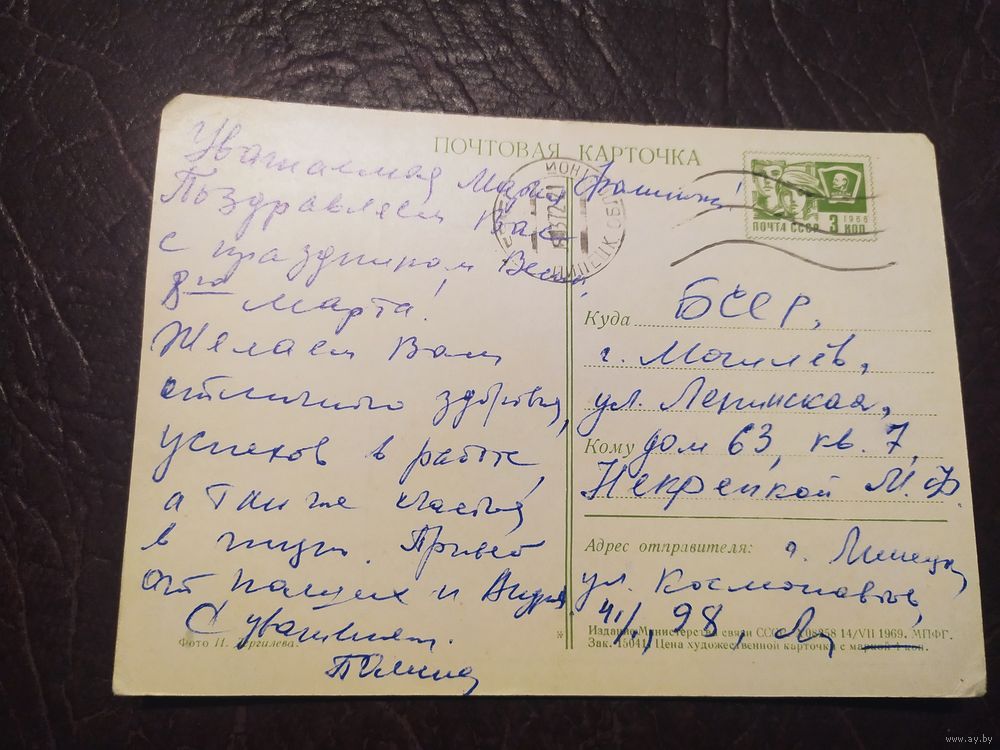 ПОЧТОВАЯ КАРТОЧКА
Уважаемая Мария
Поздравляем Вас
с праздником Весны,
8го Марта!
Желаем Вам
отличного здоровья,
успехов в работе,
а также счастья
в жизни. Привет
от наших и
С уважением.
Фото И.
ПОЧТА СССР 3 КОП
1966
ЛИПЕЦК. ОБЛ.
Куда БССР,
г. Могилёв,
ул. Ленинская,
Кому дом 63, кв. 7,
М. Ф.
Адрес отправителя: г. Липецк,
ул. Космонавтов,
98,
Издание Министерства связи СССР. 14/VII 1969. МПФГ.
Зак. 15041. Цена художественной карточки с маркой 4 коп.
www.ay.by